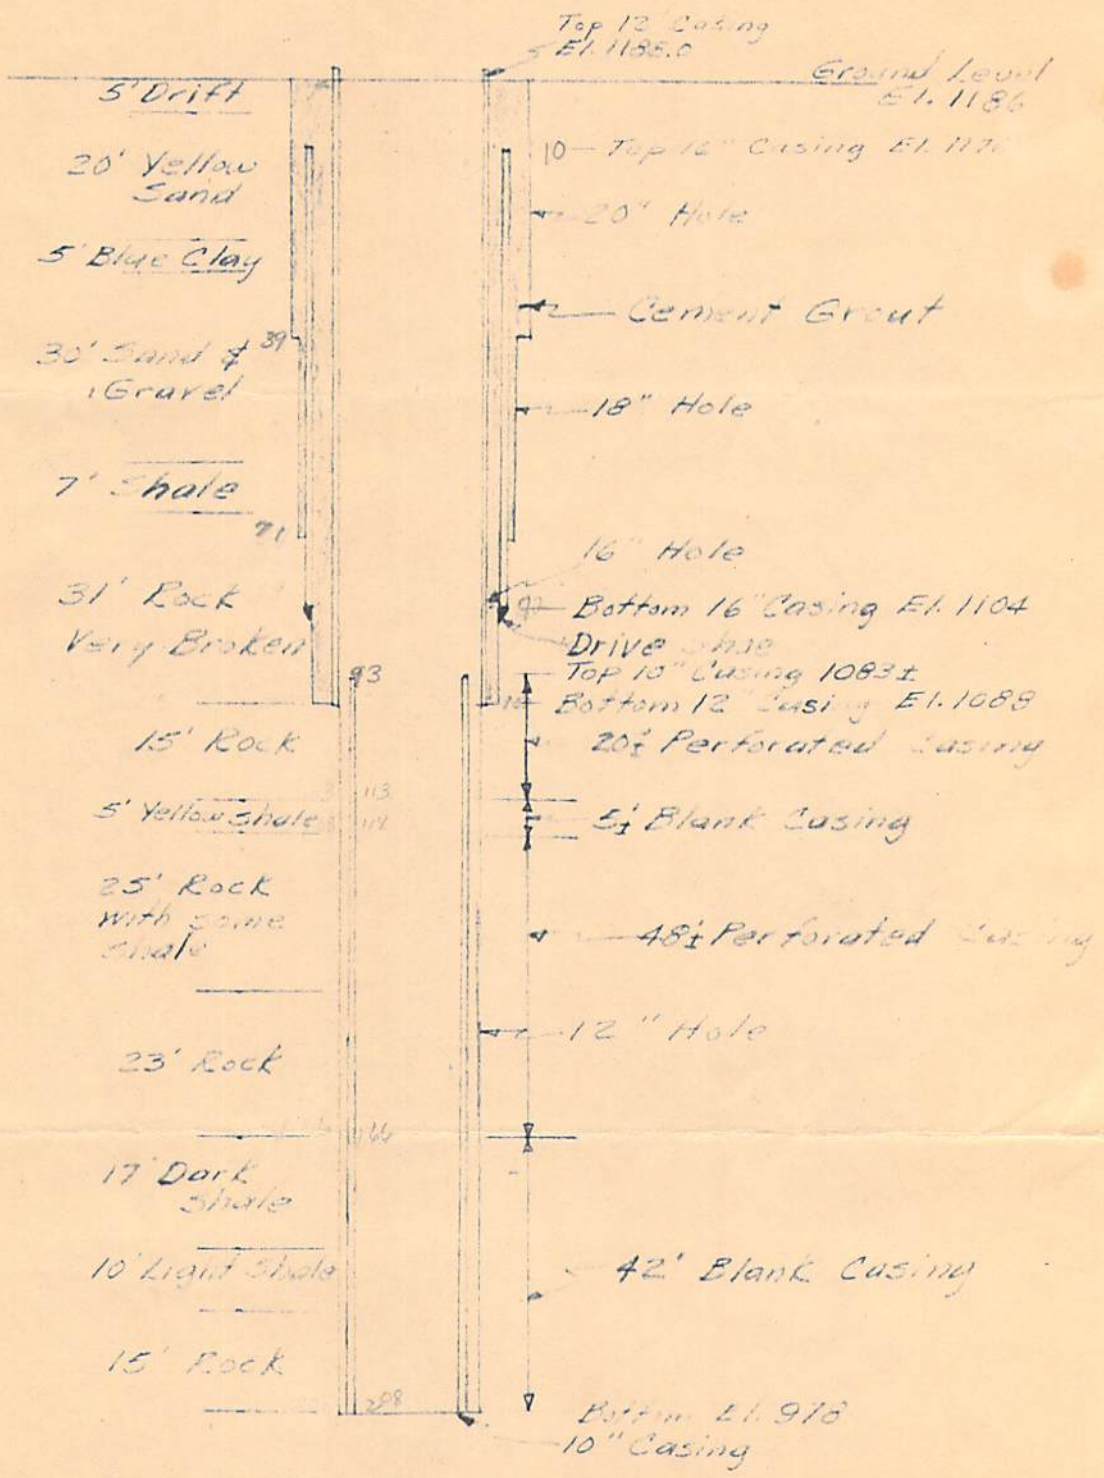 Top 12" Casing
El. 1188.0
Ground Level
El. 1186
5' Drift
20' Yellow
Sand
5' Blue Clay
30' Sand &
Gravel
39
7' Shale
71
31' Rock
Very Broken
93
15' Rock
113
5' Yellow Shale
118
25' Rock
with some
shale
23' Rock
166
17' Dark
Shale
10' Light Shale
15' Rock
208
10 Top 16" Casing El. 1176
20" Hole
Cement Grout
18" Hole
16" Hole
Bottom 16" Casing El. 1104
Drive shoe
Top 10" Casing 1083±
Bottom 12" Casing El. 1088
20'± Perforated Casing
5'± Blank Casing
48'± Perforated Casing
12" Hole
42' Blank Casing
Bottom El. 978
10" Casing